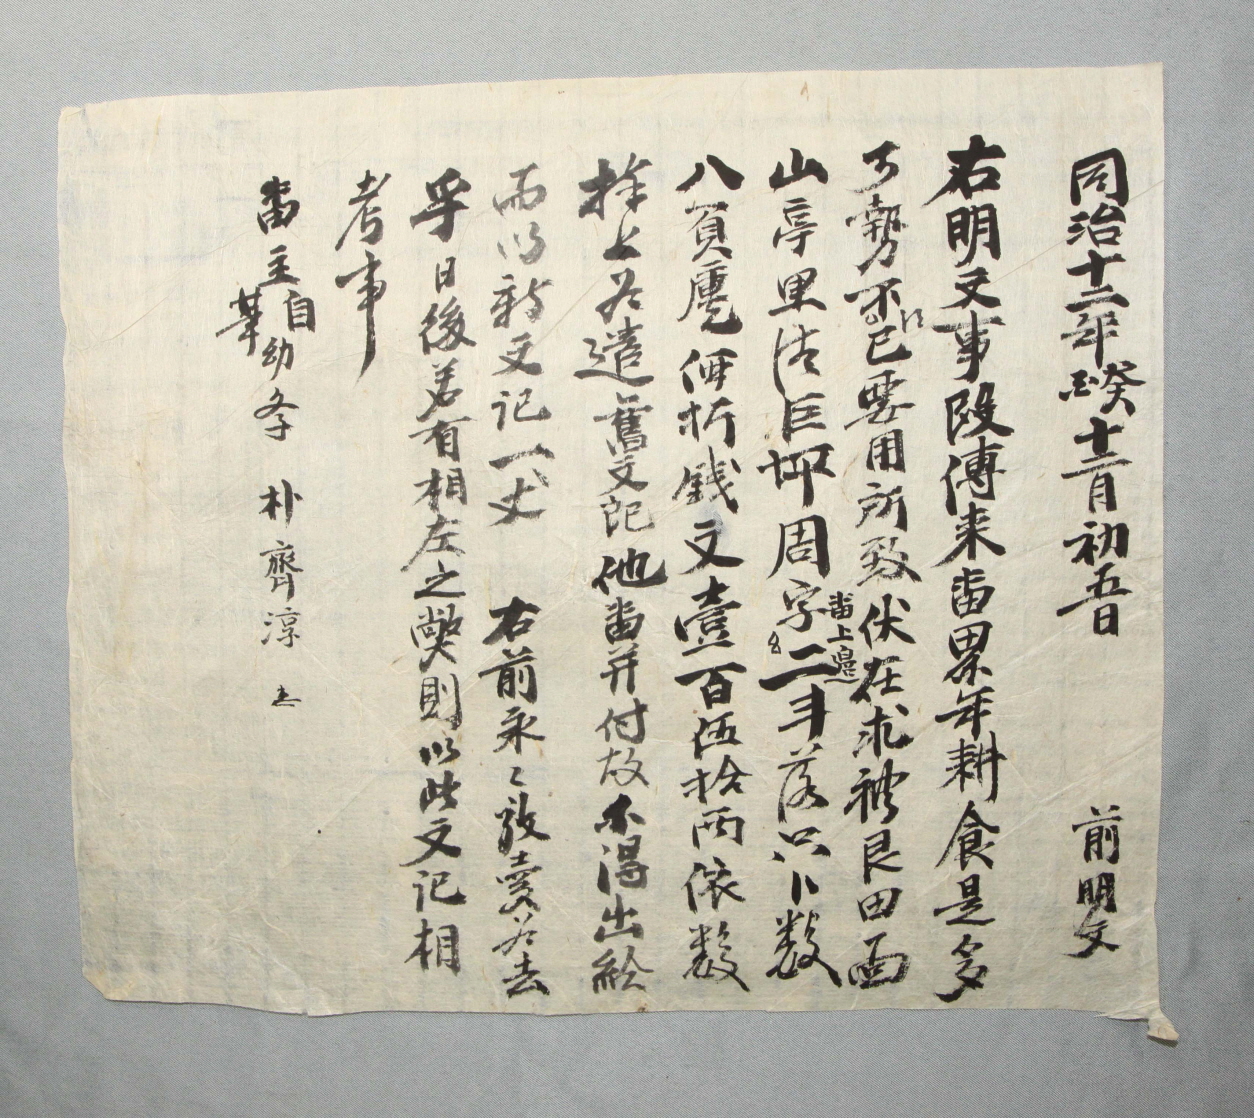 同治十二年癸酉十二月初五日 前明文
右明文事段傳來畓累年耕食是多
可勢不已要用所致伏在求禮艮田面
山亭里洁巨坪周字畓二斗落只卜數
畓上邊
八負廤価折錢文壹百伍拾兩依數
捧上是遣舊文記他畓并付故不得出給
而以新文記一丈 右前永永放賣爲去
乎日後若有相左之獘則以此文記相
考事
畓主自筆幼學 朴齊淳